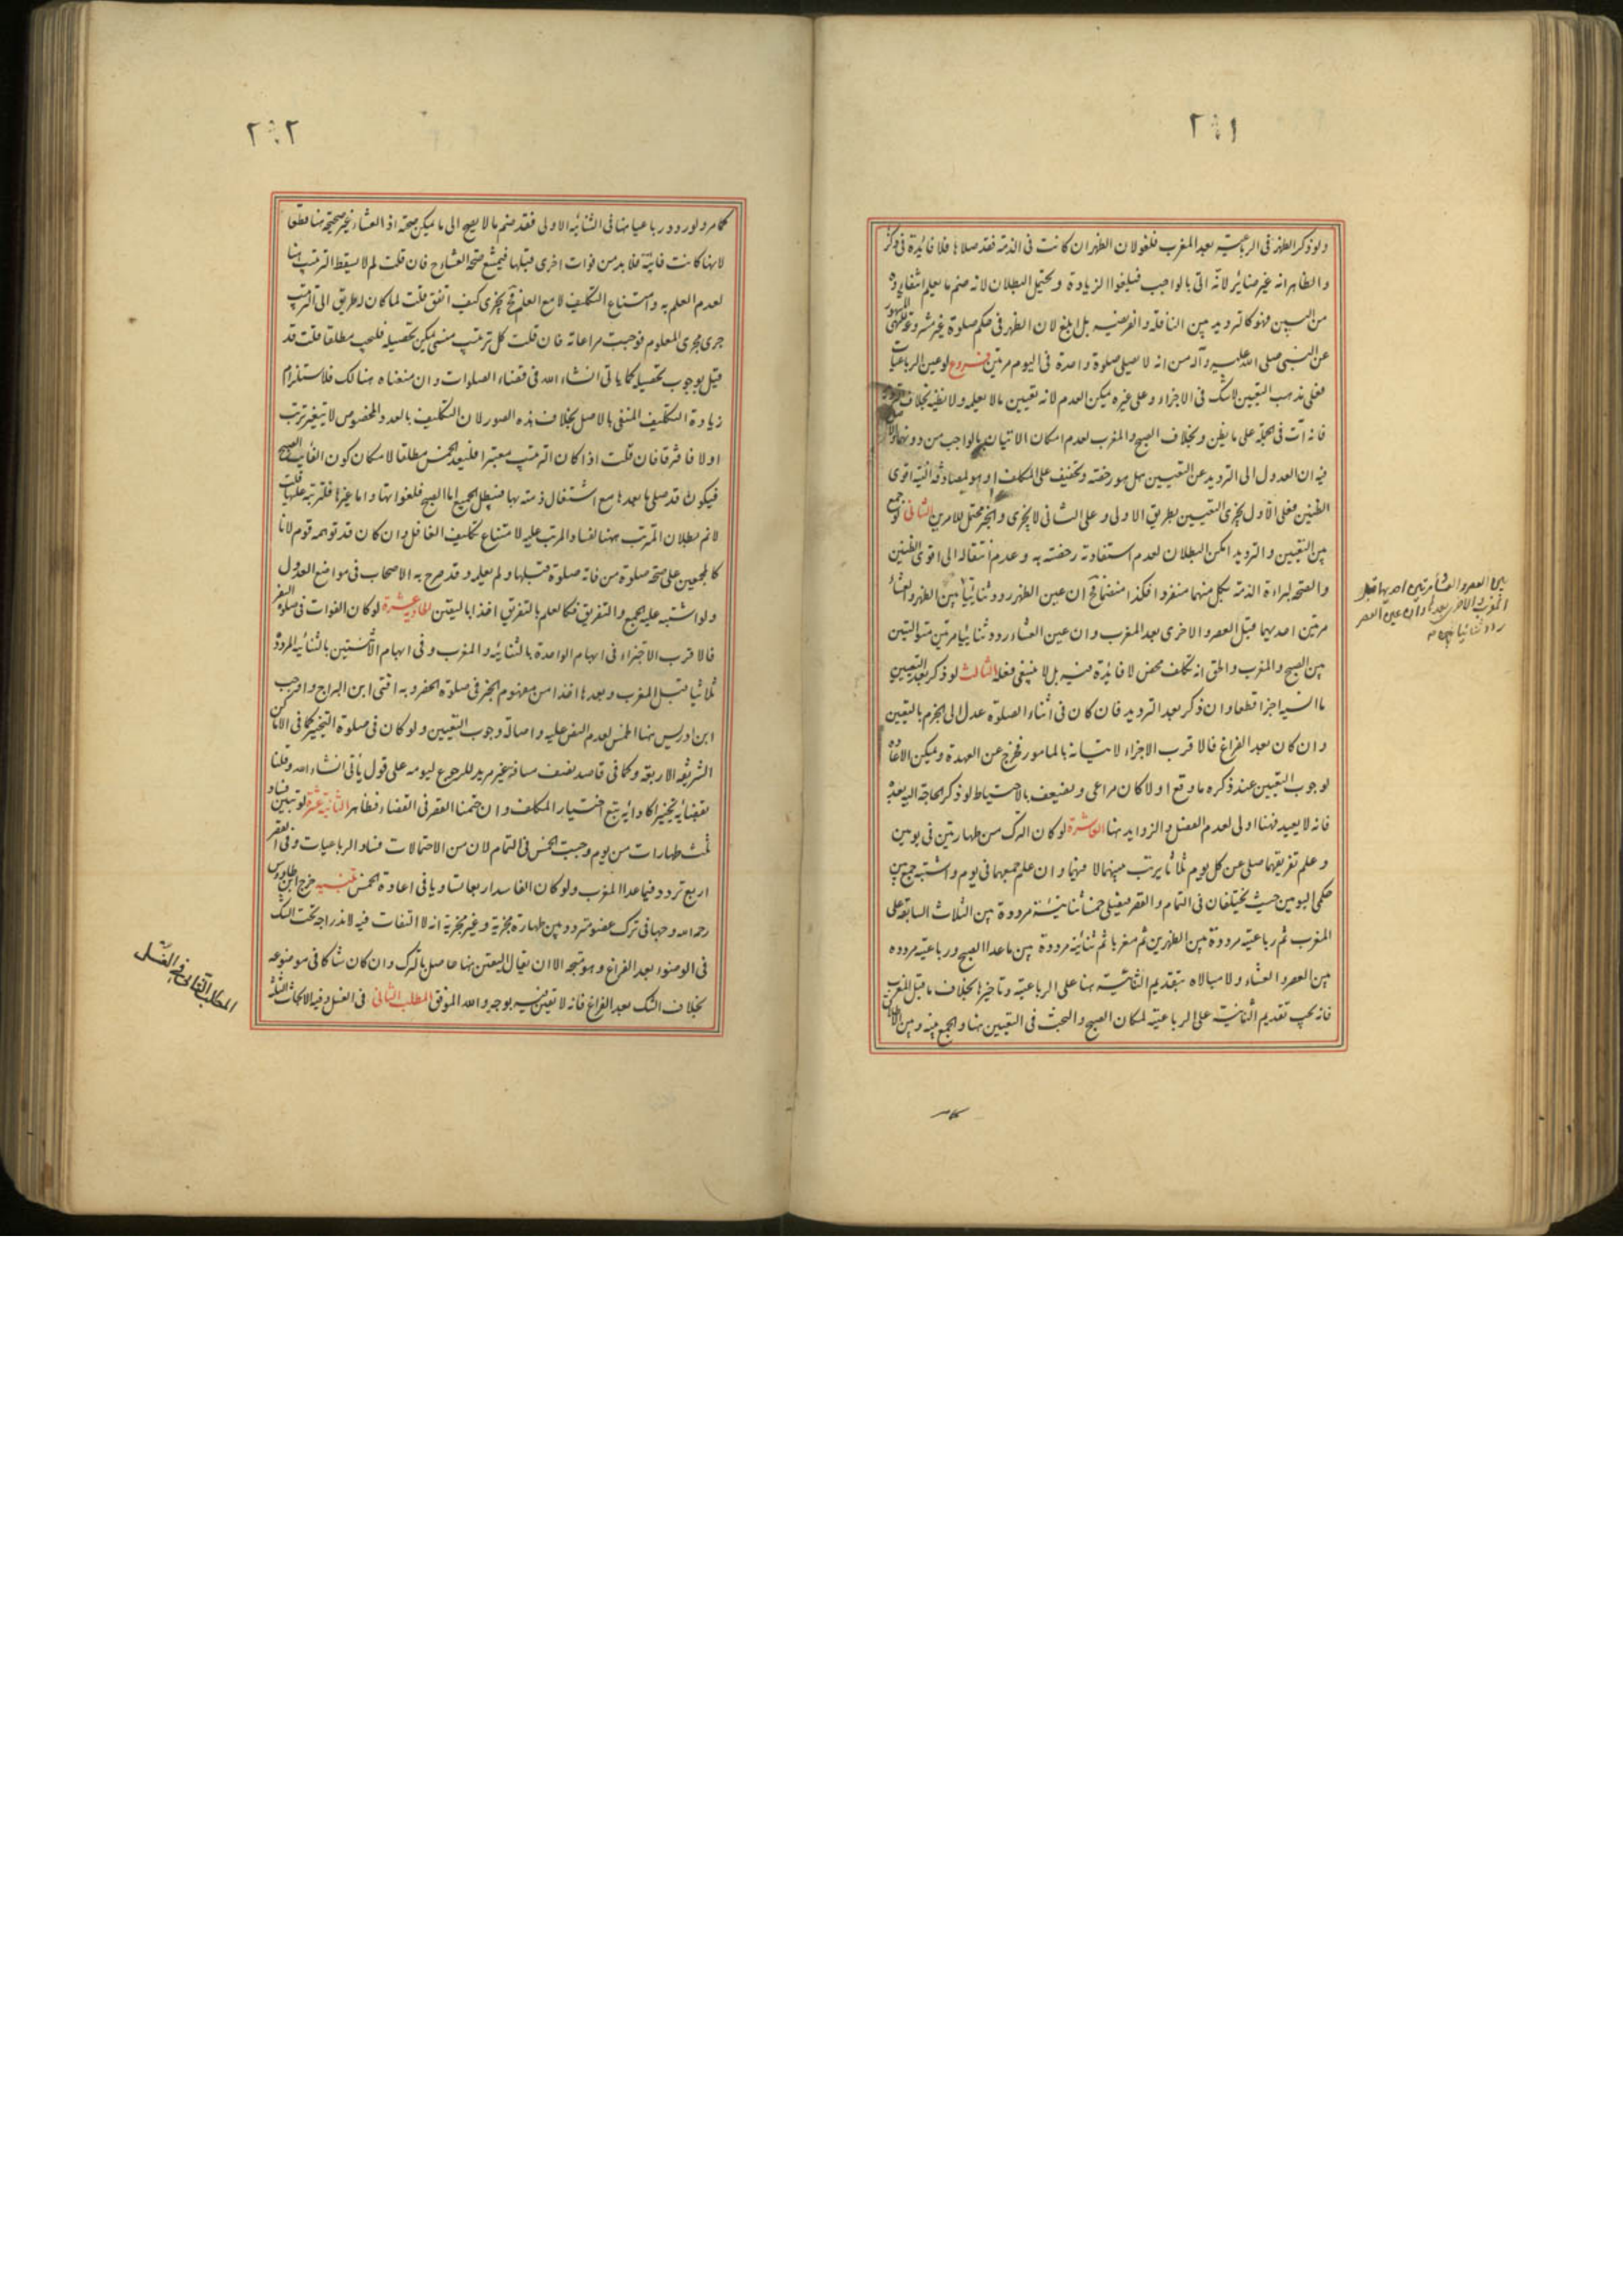 ٢٠١
ولو ذكر الظهر فى الرباعية بعد المغرب فلغو لان الظهر ان كانت فى الذمة فقد صلاها فلا فائدة فى ذكر
والظاهر انه غير ضائر لانه اتى بالواجب فيلغوا الزيادة ويحتمل البطلان لانه ضم ما يعلم انتفاءه
من البين فهو كالترديد بين النافلة والفريضة بل ابلغ لان الظهر فى حكم صلوة غير مشروعة للنهى المشهور
عن النبى صلى الله عليه وآله من انه لا يصلى صلوة واحدة فى اليوم مرتين فروع لو عين الرباعيات
فعلى مذهب التعيين لا شك فى الاجزاء وعلى غيره يمكن العدم لانه تعيين ما لا يعلمه ولا يظنه بخلاف
فانه آت فى الجملة على ما يظن وبخلاف الصبح والمغرب لعدم امكان الاتيان بالواجب من دونهما
فيه ان العدول الى الترديد عن التعيين هل هو رخصة وتخفيف على المكلف او هو لمصادفة النية اقوى
الظنين فعلى الاول يجزى التعيين بطريق الاولى وعلى الثانى لا يجزى والخبر محتمل للامرين الثانى لو جمع
بين التعيين والترديد امكن البطلان لعدم استفادة رخصة به وعدم انتقاله الى اقوى الظنين
والصحة لبراءة الذمة بكل منهما منفردا فكذا منضما فح ان عين الظهر ردد ثنائيا بين الظهر والعشاء
مرتين احديهما قبل العصر والاخرى بعد المغرب وان عين العشاء ردد ثنائيا مرتين متواليتين
بين الصبح والمغرب والحق انه تكلف محض لا فائدة فيه بل لا ينبغى فعله الثالث لو ذكر بعد التعيين
ما نسيه اجزا قطعا وان ذكر بعد الترديد فان كان فى اثناء الصلوة عدل الى الجزم بالتعيين
وان كان بعد الفراغ فالاقرب الاجزاء لاتيانه بالمامور فخرج عن العهدة ويمكن الاعادة
لوجوب التعيين عند ذكره ما وقع اولا كان مراعى ويضعف بالاحتياط لو ذكر الحاجة اليه بعد
فانه لا يعيد فهنا اولى لعدم الفصل والزوايد هنا العاشرة لو كان الترك من طهارتين فى يومين
وعلم تفريقهما صلى عن كل يوم ثلاثا يرتب بينهما لا فيهما وان علم جمعهما فى يوم واشتبه جمع بين
حكمى اليومين حيث يختلفان فى التمام والقصر فيصلى خمسا ثنائية مرددة بين الثلاث السابقة على
المغرب ثم رباعية مرددة بين الظهرين ثم مغربا ثم ثنائية مرددة بين ماعدا الصبح ورباعية مردده
بين العصر والعشاء ولا مبالاة بتقديم الثنائية هنا على الرباعية وتاخيرها بخلاف ما قبل المغرب
فانه يجب تقديم الثنائية على الرباعية لمكان الصبح والبحث فى التعيين هنا والجمع بينه وبين الاطلاق
بين العصر والعشاء مرتين احديهما قبل
المغرب والاخرى بعدها وان عين العصر
ردد ثنائيا بين
كما مر
٢٠٢
كما مر ولو ردد رباعيا منها فى الثنائية الاولى فقد ضم ما لا يصح الى ما يمكن صحته اذ العشاء غير صحيحة هنا قطعا
لانها كانت فايتة فلا بد من فوات اخرى قبلها فيمتنع صحة العشاء ح فان قلت لم لا يسقط الترتيب هنا
لعدم العلم به وامتناع التكليف لا مع العلم فح يجزى كيف اتفق قلت لما كان له طريق الى الترتيب
جرى مجرى المعلوم فوجبت مراعاته فان قلت كل ترتيب منسى يمكن تحصيله فليجب مطلقا قلت قد
قيل بوجوب تحصيله كما ياتى انشاء الله فى قضاء الصلوات وان منعناه هنالك فلاستلزام
زيادة التكليف المنفى بالاصل بخلاف هذه الصور لان التكليف بالعدد المخصوص لا يتغير ترتب
او لا فافترقا فان قلت اذا كان الترتيب معتبرا فليعد الخمس مطلقا لامكان كون الفائت الصبح
فيكون قد صلى ما بعدها مع اشتغال ذمته بها فيبطل الجميع اما الصبح فلفواتها واما غيرها فلترتبه عليها قلت
لا نم بطلان المترتب هنا لفساد المرتب عليه لامتناع تكليف الغافل وان كان قد توهمه قوم لانا
كالمجمعين على صحة صلوة من فاته صلوة قبلها ولم يعلمه وقد صرح به الاصحاب فى مواضع العدول
ولو اشتبه عليه الجمع والتفريق فكالعلم بالتفريق اخذا باليقين الحادية عشرة لو كان الفوات فى صلوة السفر
فالاقرب الاجتزاء فى ابهام الواحدة بالثنائية والمغرب وفى ابهام الاثنتين بالثنائية المرددة
ثلاثيا قبل المغرب وبعدها اخذا من مفهوم الخبر فى صلوة الحضر وبه افتى ابن البراج واوجب
ابن ادريس هنا الخمس لعدم النص عليه واصالة وجوب التعيين ولو كان فى صلوة التخيير كما فى الاماكن
الشريفة الاربعة وكما فى قاصد نصف مسافة غير مريد للرجوع ليومه على قول ياتى انشاء الله وقلنا
بقضائه تخييرا كادائه يتبع اختيار المكلف وان حتمنا القصر فى القضاء فظاهر الثانية عشرة لو تيقن فساد
ثلث طهارات من يوم وجبت الخمس فى التمام لان من الاحتمالات فساد الرباعيات وفى القصر
اربع تردد فيما عدا المغرب ولو كان الفاسد اربعا تساويا فى اعادة الخمس تنبيه خرج ابن طاووس
رحمه الله وجها فى ترك عضو متردد بين طهارة مجزية وغير مجزية انه لا التفات فيه لاندراجه تحت الشك
فى الوضوء بعد الفراغ وهو متجه الا ان يقال اليقين هنا حاصل بالترك وان كان شاكا فى موضوعه
بخلاف الشك بعد الفراغ فانه لا يقين فيه بوجه والله الموفق المطلب الثانى فى الغسل وفيه الابحاث الثلثة
المطلب الثانى فى الغسل